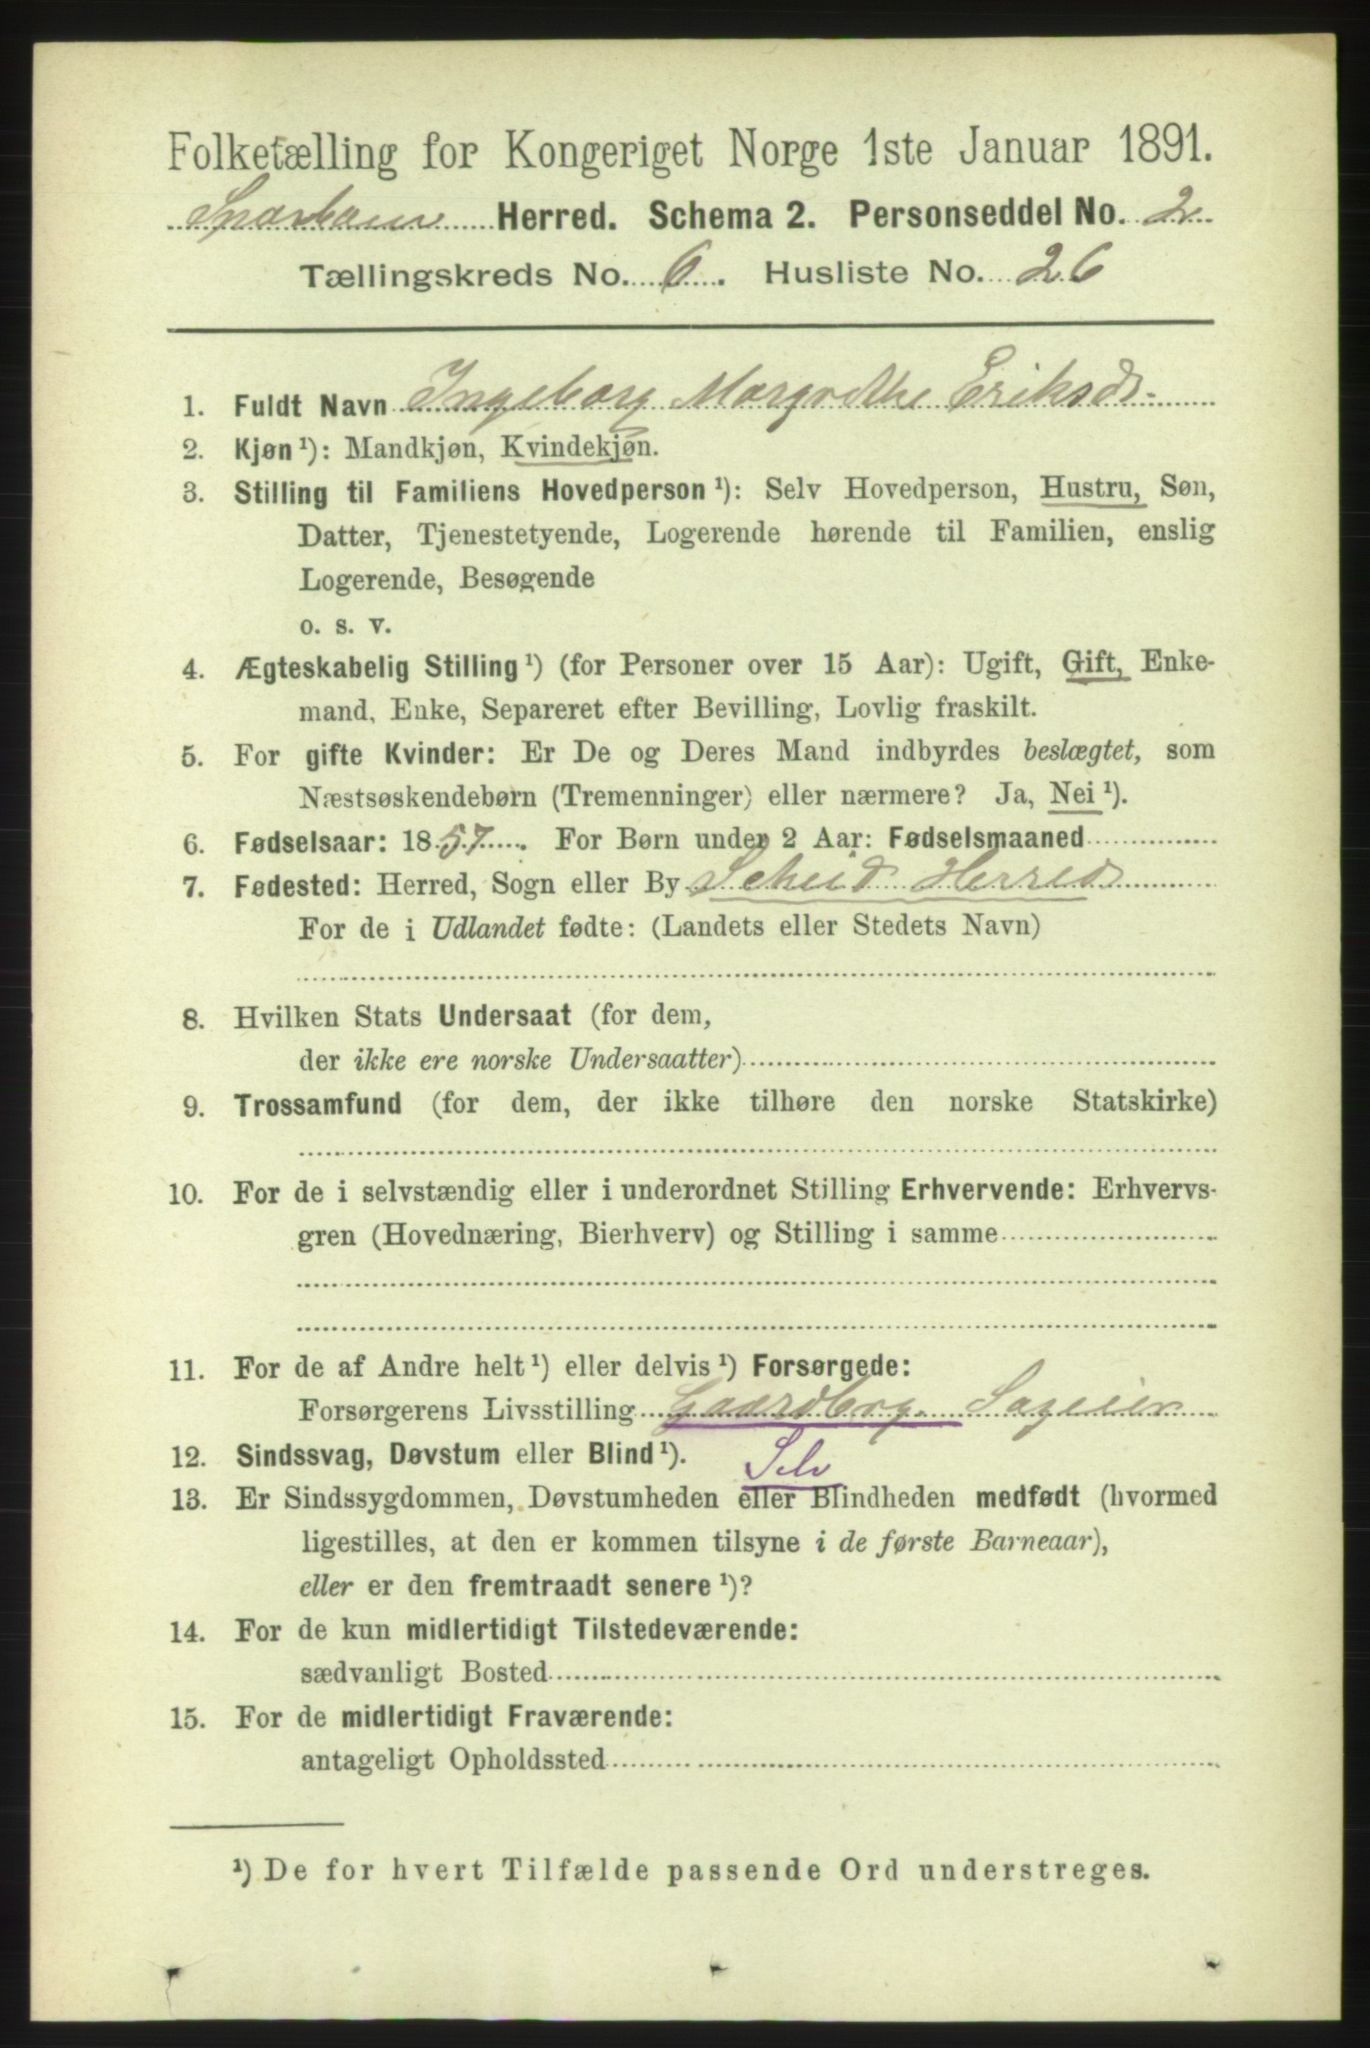 Folketælling for Kongeriget Norge 1ste Januar 1891.
Sparbuen Herred. Schema 2. Personseddel No. 2
Tællingskreds No. 6. Husliste No. 26
1. Fuldt Navn Ingeborg Margrethe Eriksdr
2. Kjøn¹): Mandkjøn, Kvindekjøn.
3. Stilling til Familiens Hovedperson¹): Selv Hovedperson, Hustru, Søn,
Datter, Tjenestetyende, Logerende hørende til Familien, enslig
Logerende, Besøgende
o. s. v.
4. Ægteskabelig Stilling¹) (for Personer over 15 Aar): Ugift, Gift, Enke-
mand, Enke, Separeret efter Bevilling, Lovlig fraskilt.
5. For gifte Kvinder: Er De og Deres Mand indbyrdes beslægtet, som
Næstsøskendebørn (Tremenninger) eller nærmere? Ja, Nei¹).
6. Fødselsaar: 1857. For Børn under 2 Aar: Fødselsmaaned
7. Fødested: Herred, Sogn eller By Scheid Herred
For de i Udlandet fødte: (Landets eller Stedets Navn)
8. Hvilken Stats Undersaat (for dem,
der ikke ere norske Undersaatter)
9. Trossamfund (for dem, der ikke tilhøre den norske Statskirke)
10. For de i selvstændig eller i underordnet Stilling Erhvervende: Erhvervs-
gren (Hovednæring, Bierhverv) og Stilling i samme
11. For de af Andre helt¹) eller delvis¹) Forsørgede:
Forsørgerens Livsstilling Gaardbrg. Sageier
12. Sindssvag, Døvstum eller Blind¹). Selv
13. Er Sindssygdommen, Døvstumheden eller Blindheden medfødt (hvormed
ligestilles, at den er kommen tilsyne i de første Barneaar),
eller er den fremtraadt senere¹)?
14. For de kun midlertidigt Tilstedeværende:
sædvanligt Bosted
15. For de midlertidigt Fraværende:
antageligt Opholdssted
¹) De for hvert Tilfælde passende Ord understreges.